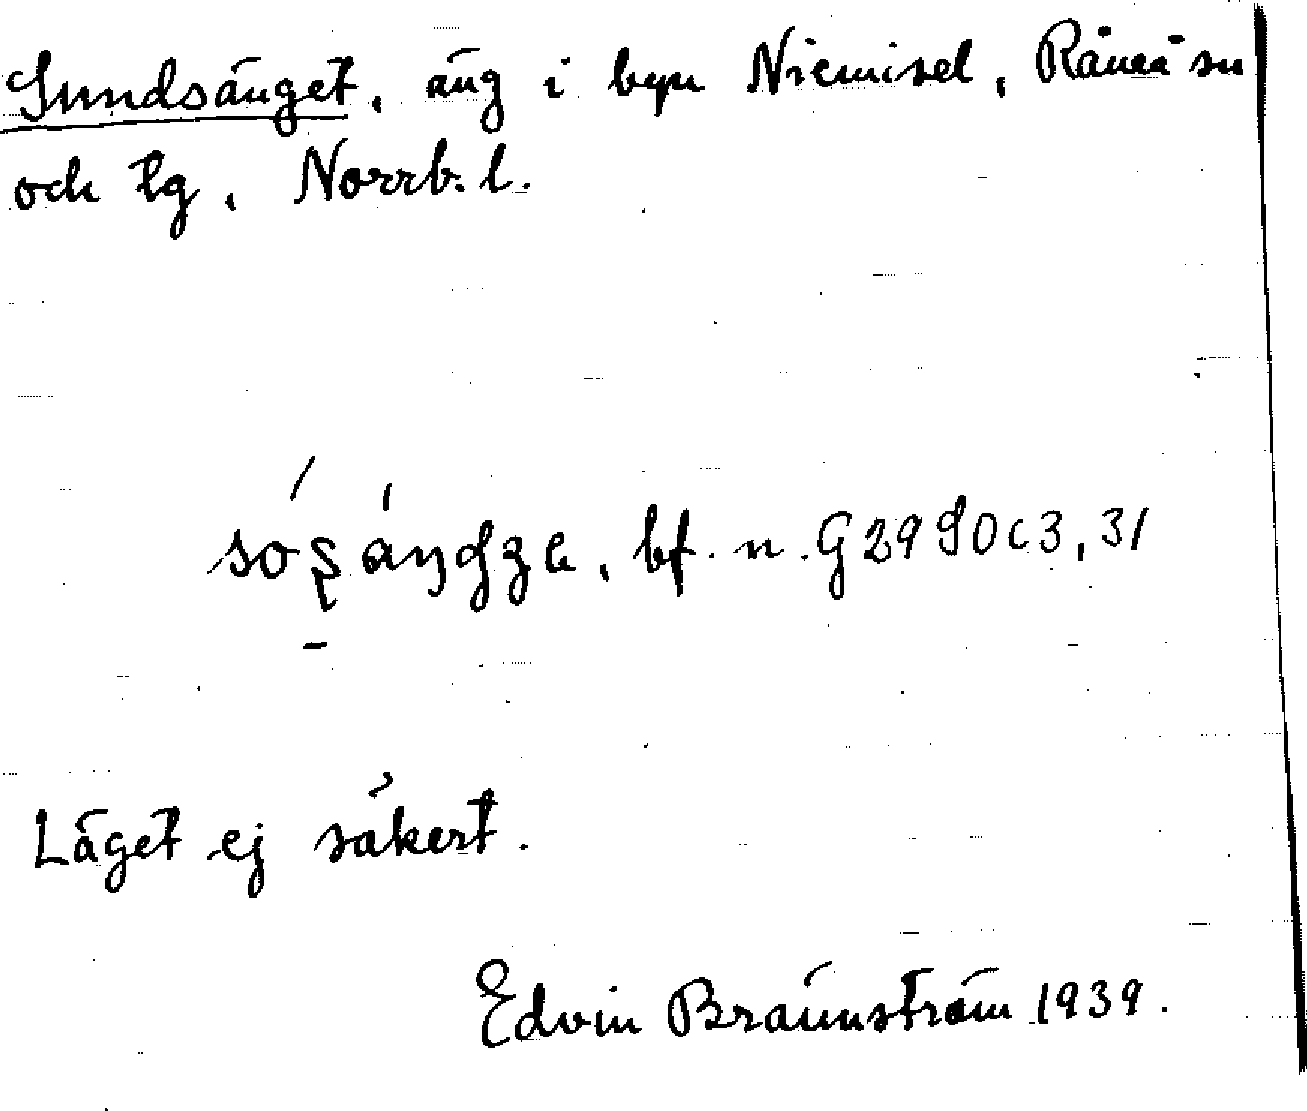 Sundsänget, äng i byn Niemisel, Råneå sn
och tg, Norrb. l.
bf. n. G 29 9 0 c 3, 31
Läget ej säkert.
Edvin Brännström 1939.